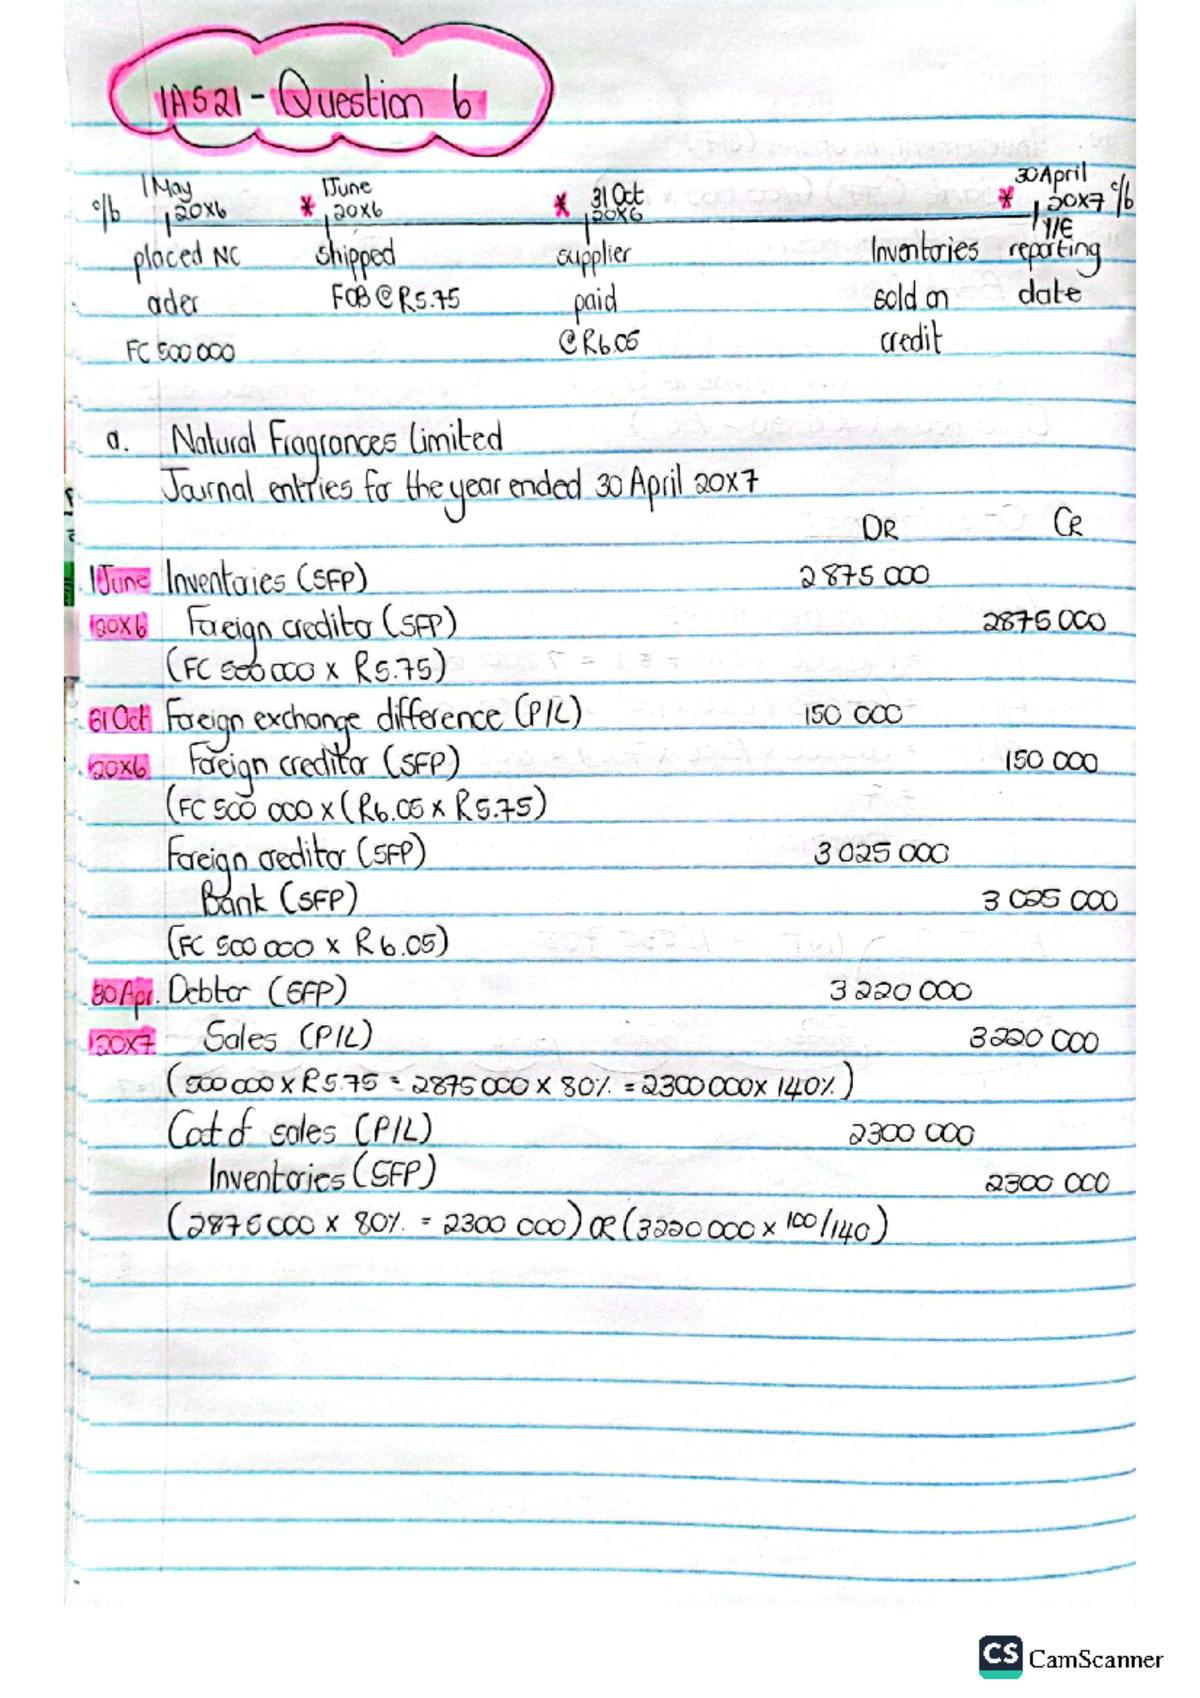 IAS21 - Question 6
1 May 1June 31 Oct 30 April
o/b 20x6 * 20x6 * 20x6 * 20x7 c/b
Y/E
placed NC shipped supplier Inventories reporting
order FOB @ R5.75 paid sold on date
FC 500 000 @ R6.05 credit
a. Natural Fragrances Limited
Journal entries for the year ended 30 April 20x7
DR CR
1June Inventories (SFP) 2875 000
20x6 Foreign creditor (SFP) 2875 000
(FC 500 000 x R5.75)
31 Oct Foreign exchange difference (P/L) 150 000
20x6 Foreign creditor (SFP) 150 000
(FC 500 000 x (R6.05 x R5.75)
Foreign creditor (SFP) 3 025 000
Bank (SFP) 3 025 000
(FC 500 000 x R6.05)
30 Apr. Debtor (SFP) 3 220 000
20x7 Sales (P/L) 3220 000
(500 000 x R5.75 = 2875 000 x 80% = 2300 000 x 140%)
Cost of sales (P/L) 2300 000
Inventories (SFP) 2300 000
(2875 000 x 80% = 2300 000) OR (3220 000 x 100/140)
CS CamScanner